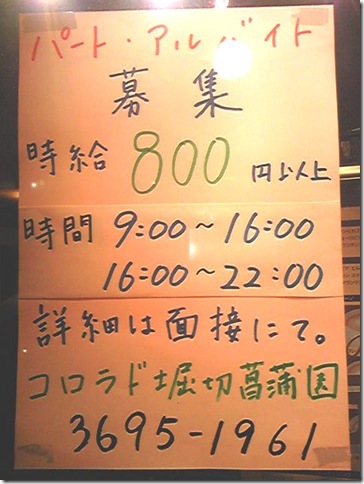 パート・アルバイト
募集
時給 800 円以上
時間 9:00～16:00
16:00～22:00
詳細は面接にて。
コロラド堀切菖蒲園
3695-1961